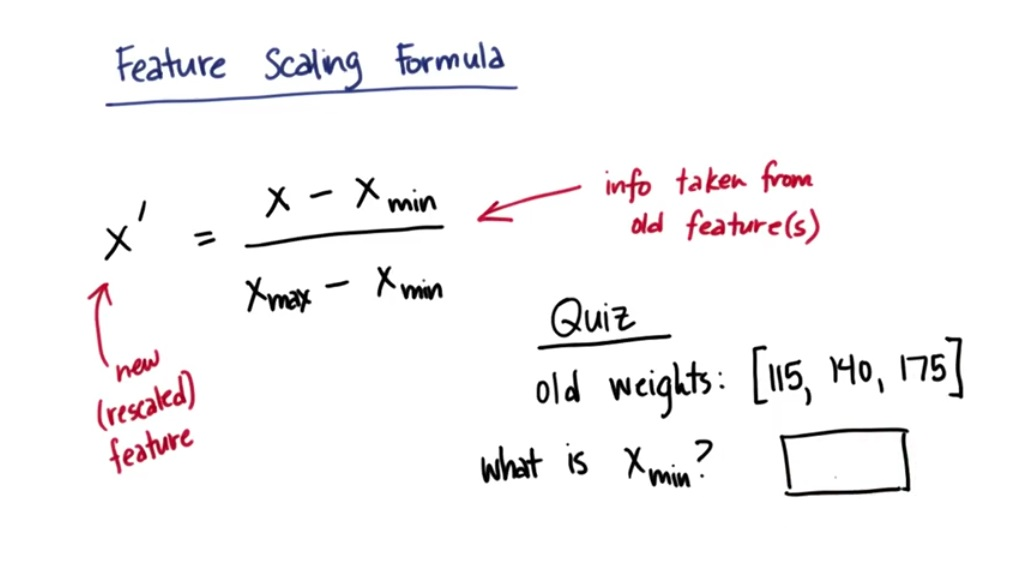 Feature Scaling Formula
x' = (x - xmin) / (xmax - xmin)
info taken from
old feature(s)
new
(rescaled)
feature
Quiz
old weights: [115, 140, 175]
what is xmin?